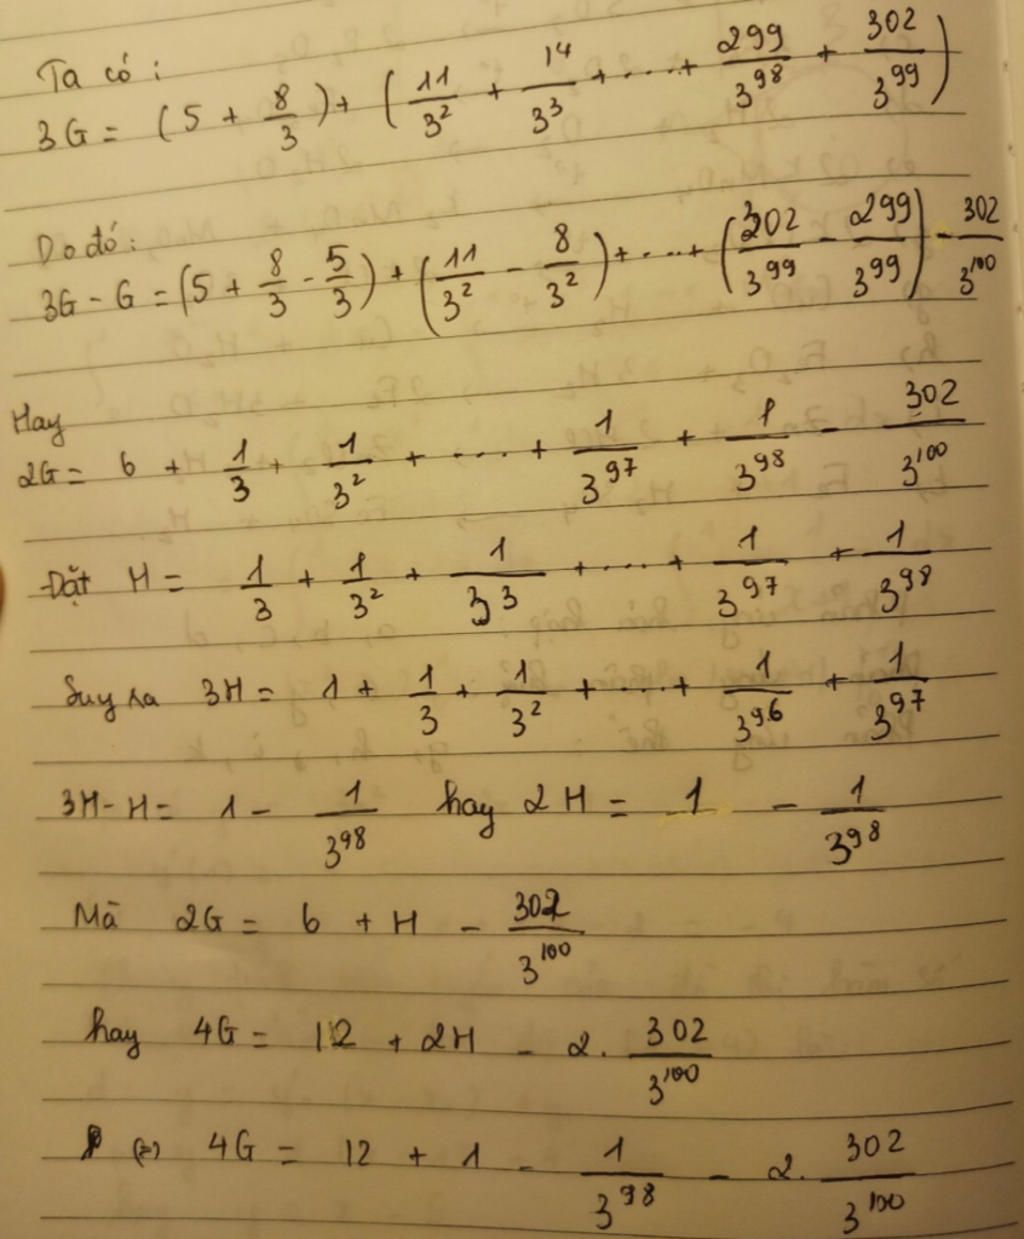 Ta có :
3G = (5 + 8/3) + (11/3² + 14/3³ + .... + 299/3⁹⁸ + 302/3⁹⁹)
Do đó :
3G - G = (5 + 8/3 - 5/3) + (11/3² - 8/3²) + .... + (302/3⁹⁹ - 299/3⁹⁹) - 302/3¹⁰⁰
Hay
2G = 6 + 1/3 + 1/3² + .... + 1/3⁹⁷ + 1/3⁹⁸ - 302/3¹⁰⁰
Đặt H = 1/3 + 1/3² + 1/3³ + .... + 1/3⁹⁷ + 1/3⁹⁸
Suy ra 3H = 1 + 1/3 + 1/3² + .... + 1/3⁹⁶ + 1/3⁹⁷
3H - H = 1 - 1/3⁹⁸ hay 2H = 1 - 1/3⁹⁸
Mà 2G = 6 + H - 302/3¹⁰⁰
hay 4G = 12 + 2H - 2. 302/3¹⁰⁰
(=) 4G = 12 + 1 - 1/3⁹⁸ - 2. 302/3¹⁰⁰